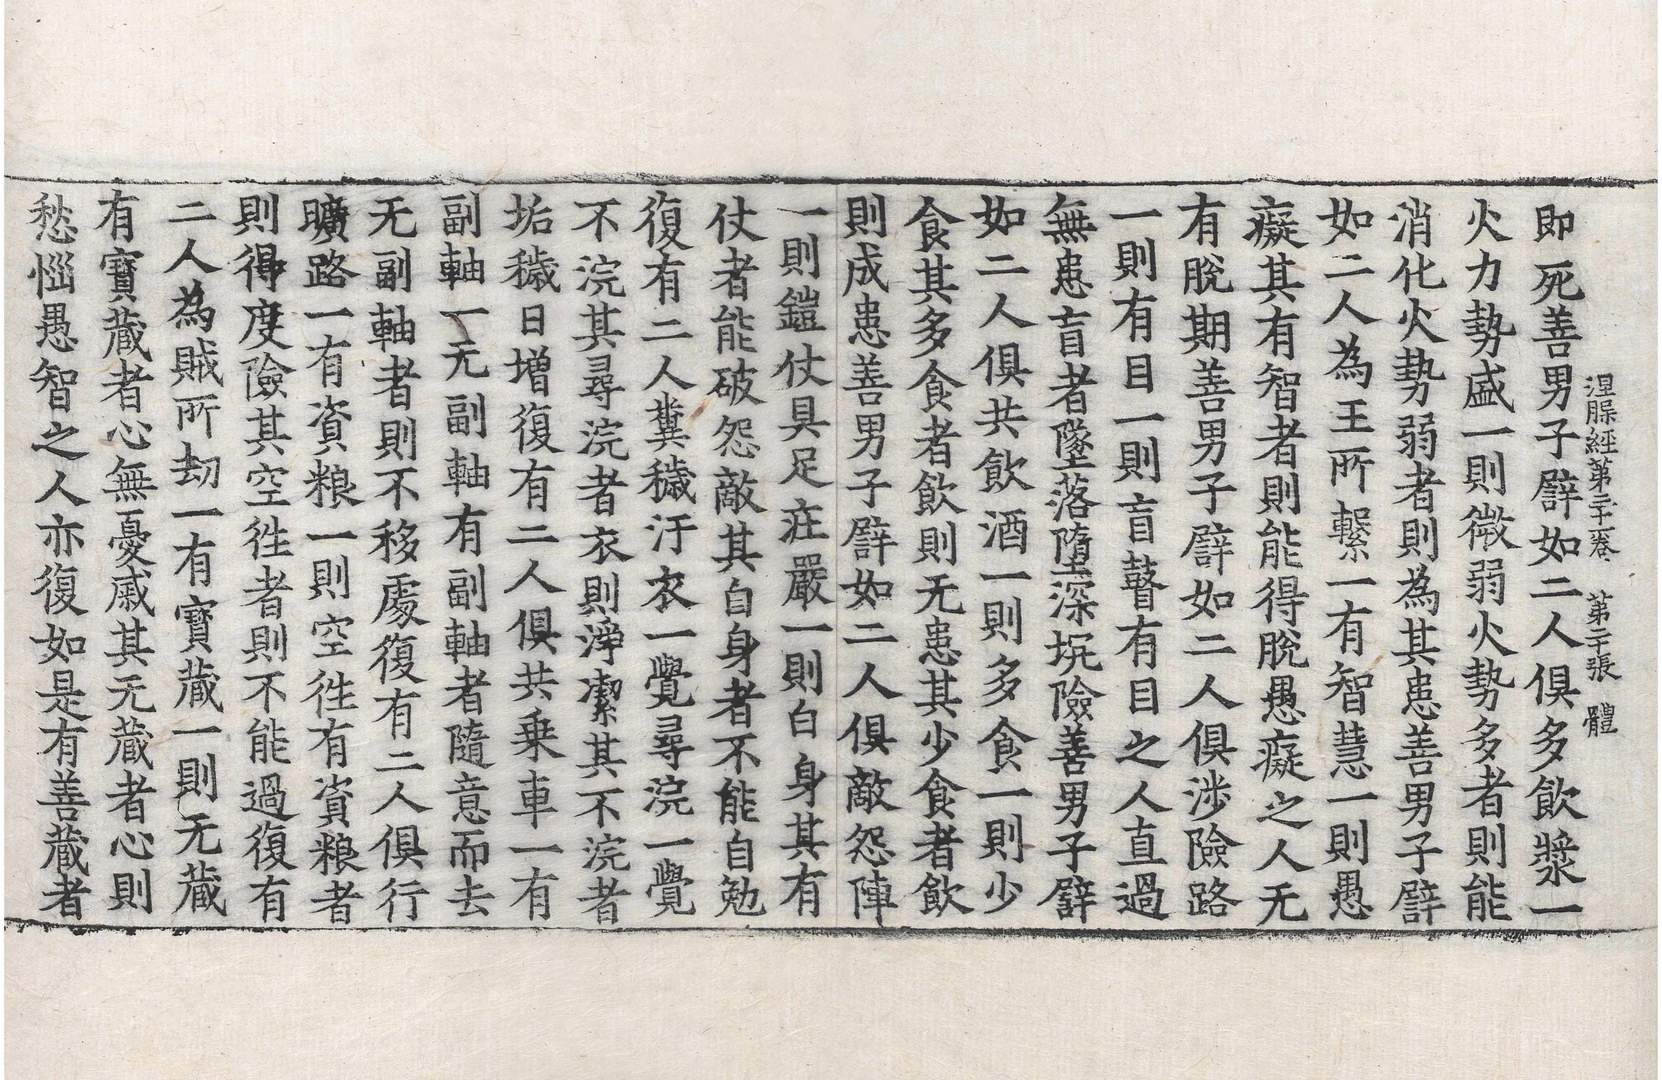 涅槃經第三十一卷 第二十張 體
即死善男子譬如二人俱多飲漿一
火力勢盛一則微弱火勢多者則能
消化火勢弱者則為其患善男子譬
如二人為王所繫一有智慧一則愚
癡其有智者則能得脫愚癡之人无
有脫期善男子譬如二人俱涉險路
一則有目一則盲瞽有目之人直過
無患盲者墜落墮深坑險善男子譬
如二人俱共飲酒一則多食一則少
食其多食者飲則无患其少食者飲
則成患善男子譬如二人俱敵怨陣
一則鎧仗具足莊嚴一則白身其有
仗者能破怨敵其自身者不能自勉
復有二人糞穢汙衣一覺尋浣一覺
不浣其尋浣者衣則淨潔其不浣者
垢穢日增復有二人俱共乗車一有
副軸一无副軸有副軸者隨意而去
无副軸者則不移處復有二人俱行
曠路一有資粮一則空徃有資粮者
則得度險其空徃者則不能過復有
二人為賊所劫一有寶藏一則无藏
有寶藏者心無憂慼其无藏者心則
愁惱愚智之人亦復如是有善藏者